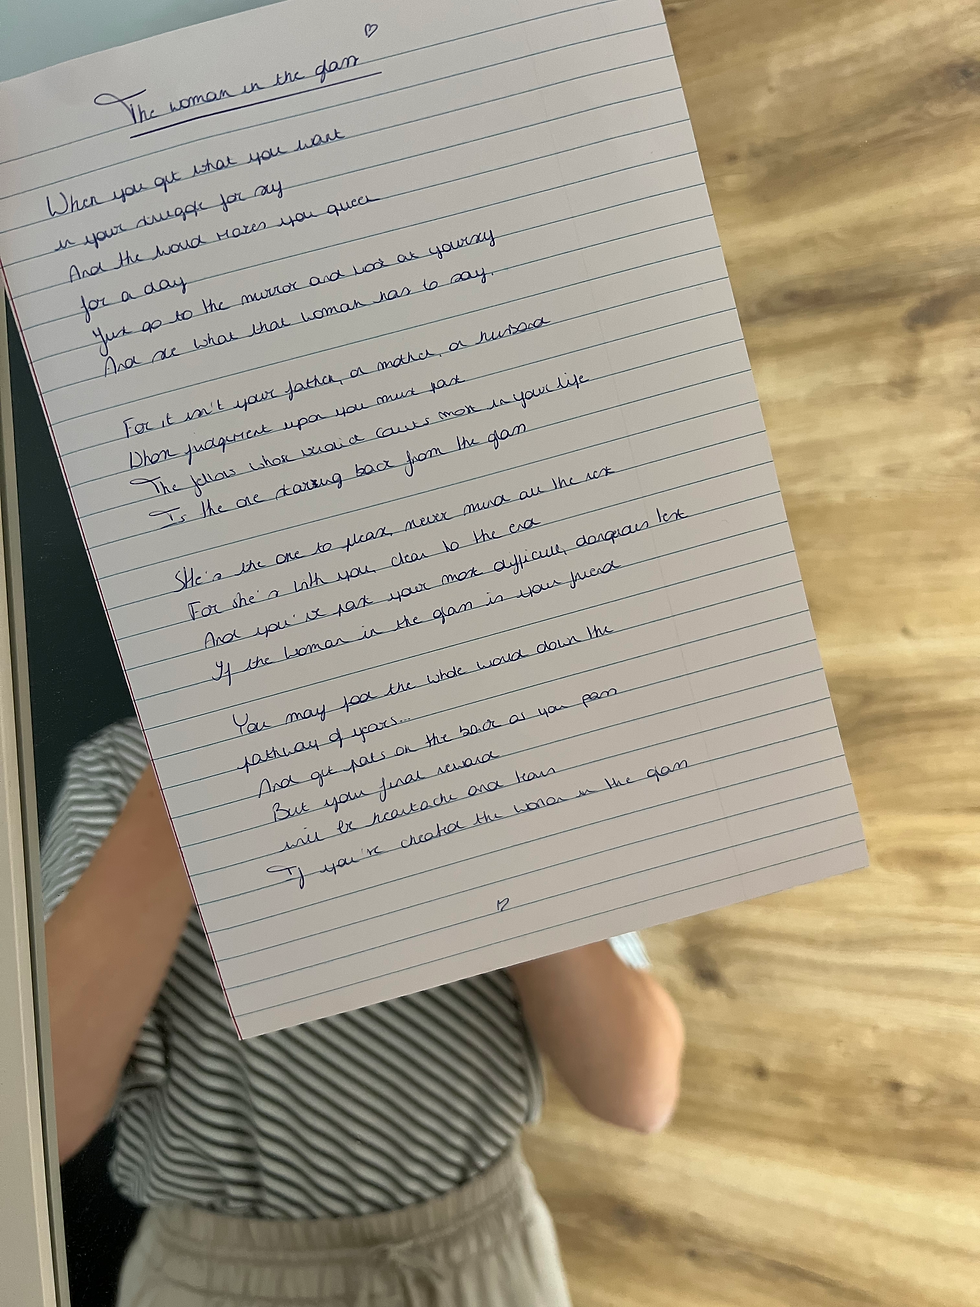 The woman in the glass
When you get what you want
in your struggle for self
And the world makes you queen
for a day
Just go to the mirror and look at yourself
And see what that woman has to say.
For it isn't your father, or mother, or husband
Whose judgment upon you must pass
The fellow whose verdict counts most in your life
Is the one starring back from the glass
She's the one to please, never mind all the rest
For she's with you, clear to the end
And you've past your most difficult, dangerous test
If the woman in the glass is your friend
You may fool the whole world down the
pathway of years...
And get pats on the back as you pass
But your final reward
will be heartache and tears
If you've cheated the woman in the glass